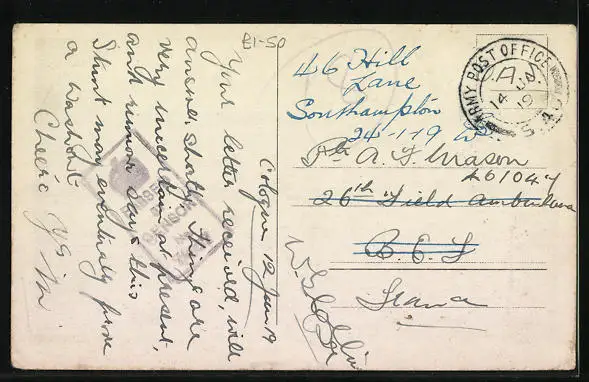 £1-50
Cologne 12 Jan 19
Your letter received, will
answer shortly. Things are
very uncertain at present,
and rumour says this
stunt may eventually prove
a washout
Cheero
46 Hill
Lane
Southampton
24-1-19
Pte A. F. Mason
461044
26th Field Ambulance
B E F
France
ARMY POST OFFICE
A
14 JA
19
S.40
PASSED
BY
CENSOR